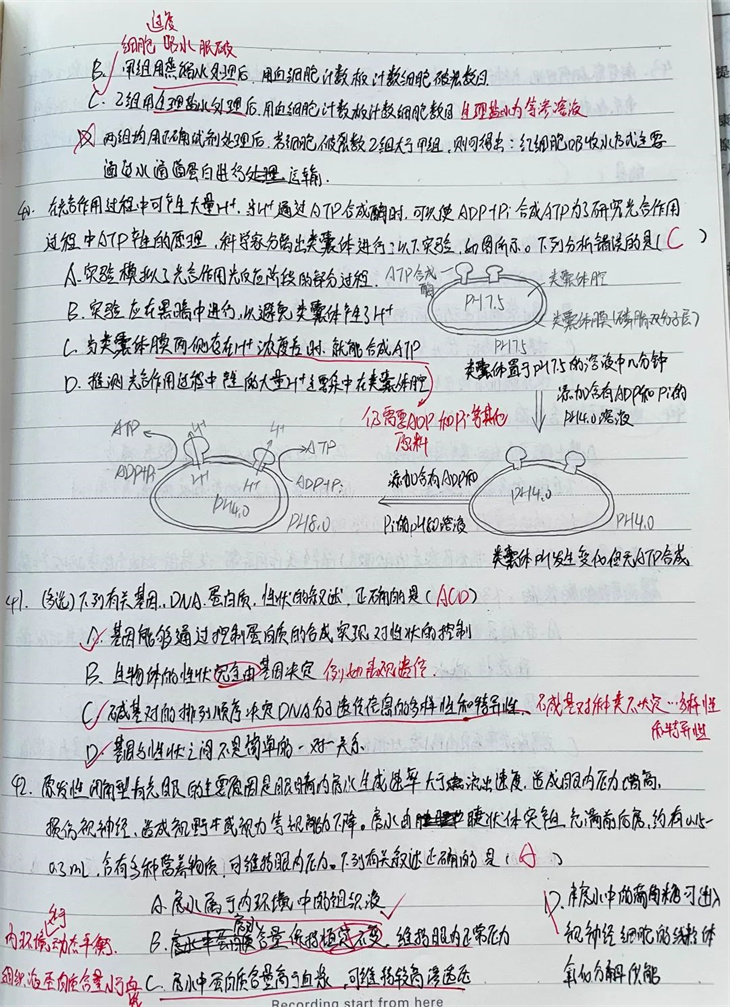 过度
细胞 吸水胀破
B. 甲组用蒸馏水处理后，用血细胞计数板计数细胞破裂数目
C. 乙组用生理盐水处理后，用血细胞计数板计数细胞数目 生理盐水为等渗溶液
D. 两组均用正确试剂处理后，若细胞破裂数乙组大于甲组，则可得出：红细胞吸收水方式主要
通过水通道蛋白进行 运输.
40. 在光合作用过程中可产生大量H⁺，当H⁺通过ATP合成酶时，可以使ADP+Pi合成ATP为了研究光合作用
过程中ATP产生的原理，科学家分离出类囊体进行了以下实验，如图所示。下列分析错误的是( C )
A. 实验模拟了光合作用光反应阶段的部分过程.
ATP合成酶
类囊体腔
PH7.5
B. 实验应在黑暗中进行，以避免类囊体产生了H⁺
类囊体膜(磷脂双分子层)
PH7.5
C. 当类囊体膜两侧存在H⁺浓度差时，就能合成ATP
类囊体置于PH7.5的溶液中几分钟
D. 推测光合作用过程中产生的大量H⁺主要集中在类囊体腔
添加含有ADP和Pi的
PH4.0溶液
仍需要ADP和Pi等其他
原料
ATP H⁺ H⁺ ATP
ADP+Pi H⁺ H⁺ ADP+Pi
PH4.0
PH8.0
添加含有ADP和
Pi的PH8的溶液
PH4.0
PH4.0
类囊体PH发生变化但无ATP合成
41. (多选)下列有关基因、DNA、蛋白质、性状的叙述，正确的是( ACD )
A. 基因能够通过控制蛋白质的合成实现对性状的控制
B. 生物体的性状完全由基因决定 例如表观遗传.
C. 碱基对的排列顺序决定DNA分子遗传信息的多样性和特异性、 而碱基对种类不决定…多样性
和特异性
D. 基因与性状之间不是简单的一对一关系
42. 原发性闭角型青光眼的主要原因是眼睛内房水生成速率大于 流出速度，造成眼内压增高，
损伤视神经，造成视野 或视力等视 下降。房水由 睫状体突产生 充满前后房，约有0.15-
0.3mL，含有多种营养物质，可维持眼内压力。下列有关叙述正确的是( A )
A. 房水属于内环境中的组织液
D. 房水中的葡萄糖可进入
房水
B. 含量保持恒定不变，维持眼内正常压力
视神经细胞的线粒体
处于
内环境动态平衡.
C. 房水中蛋白质含量高于血浆，可维持较高渗透压
氧化分解供能
组织液蛋白质含量小于血浆
Recording start from here